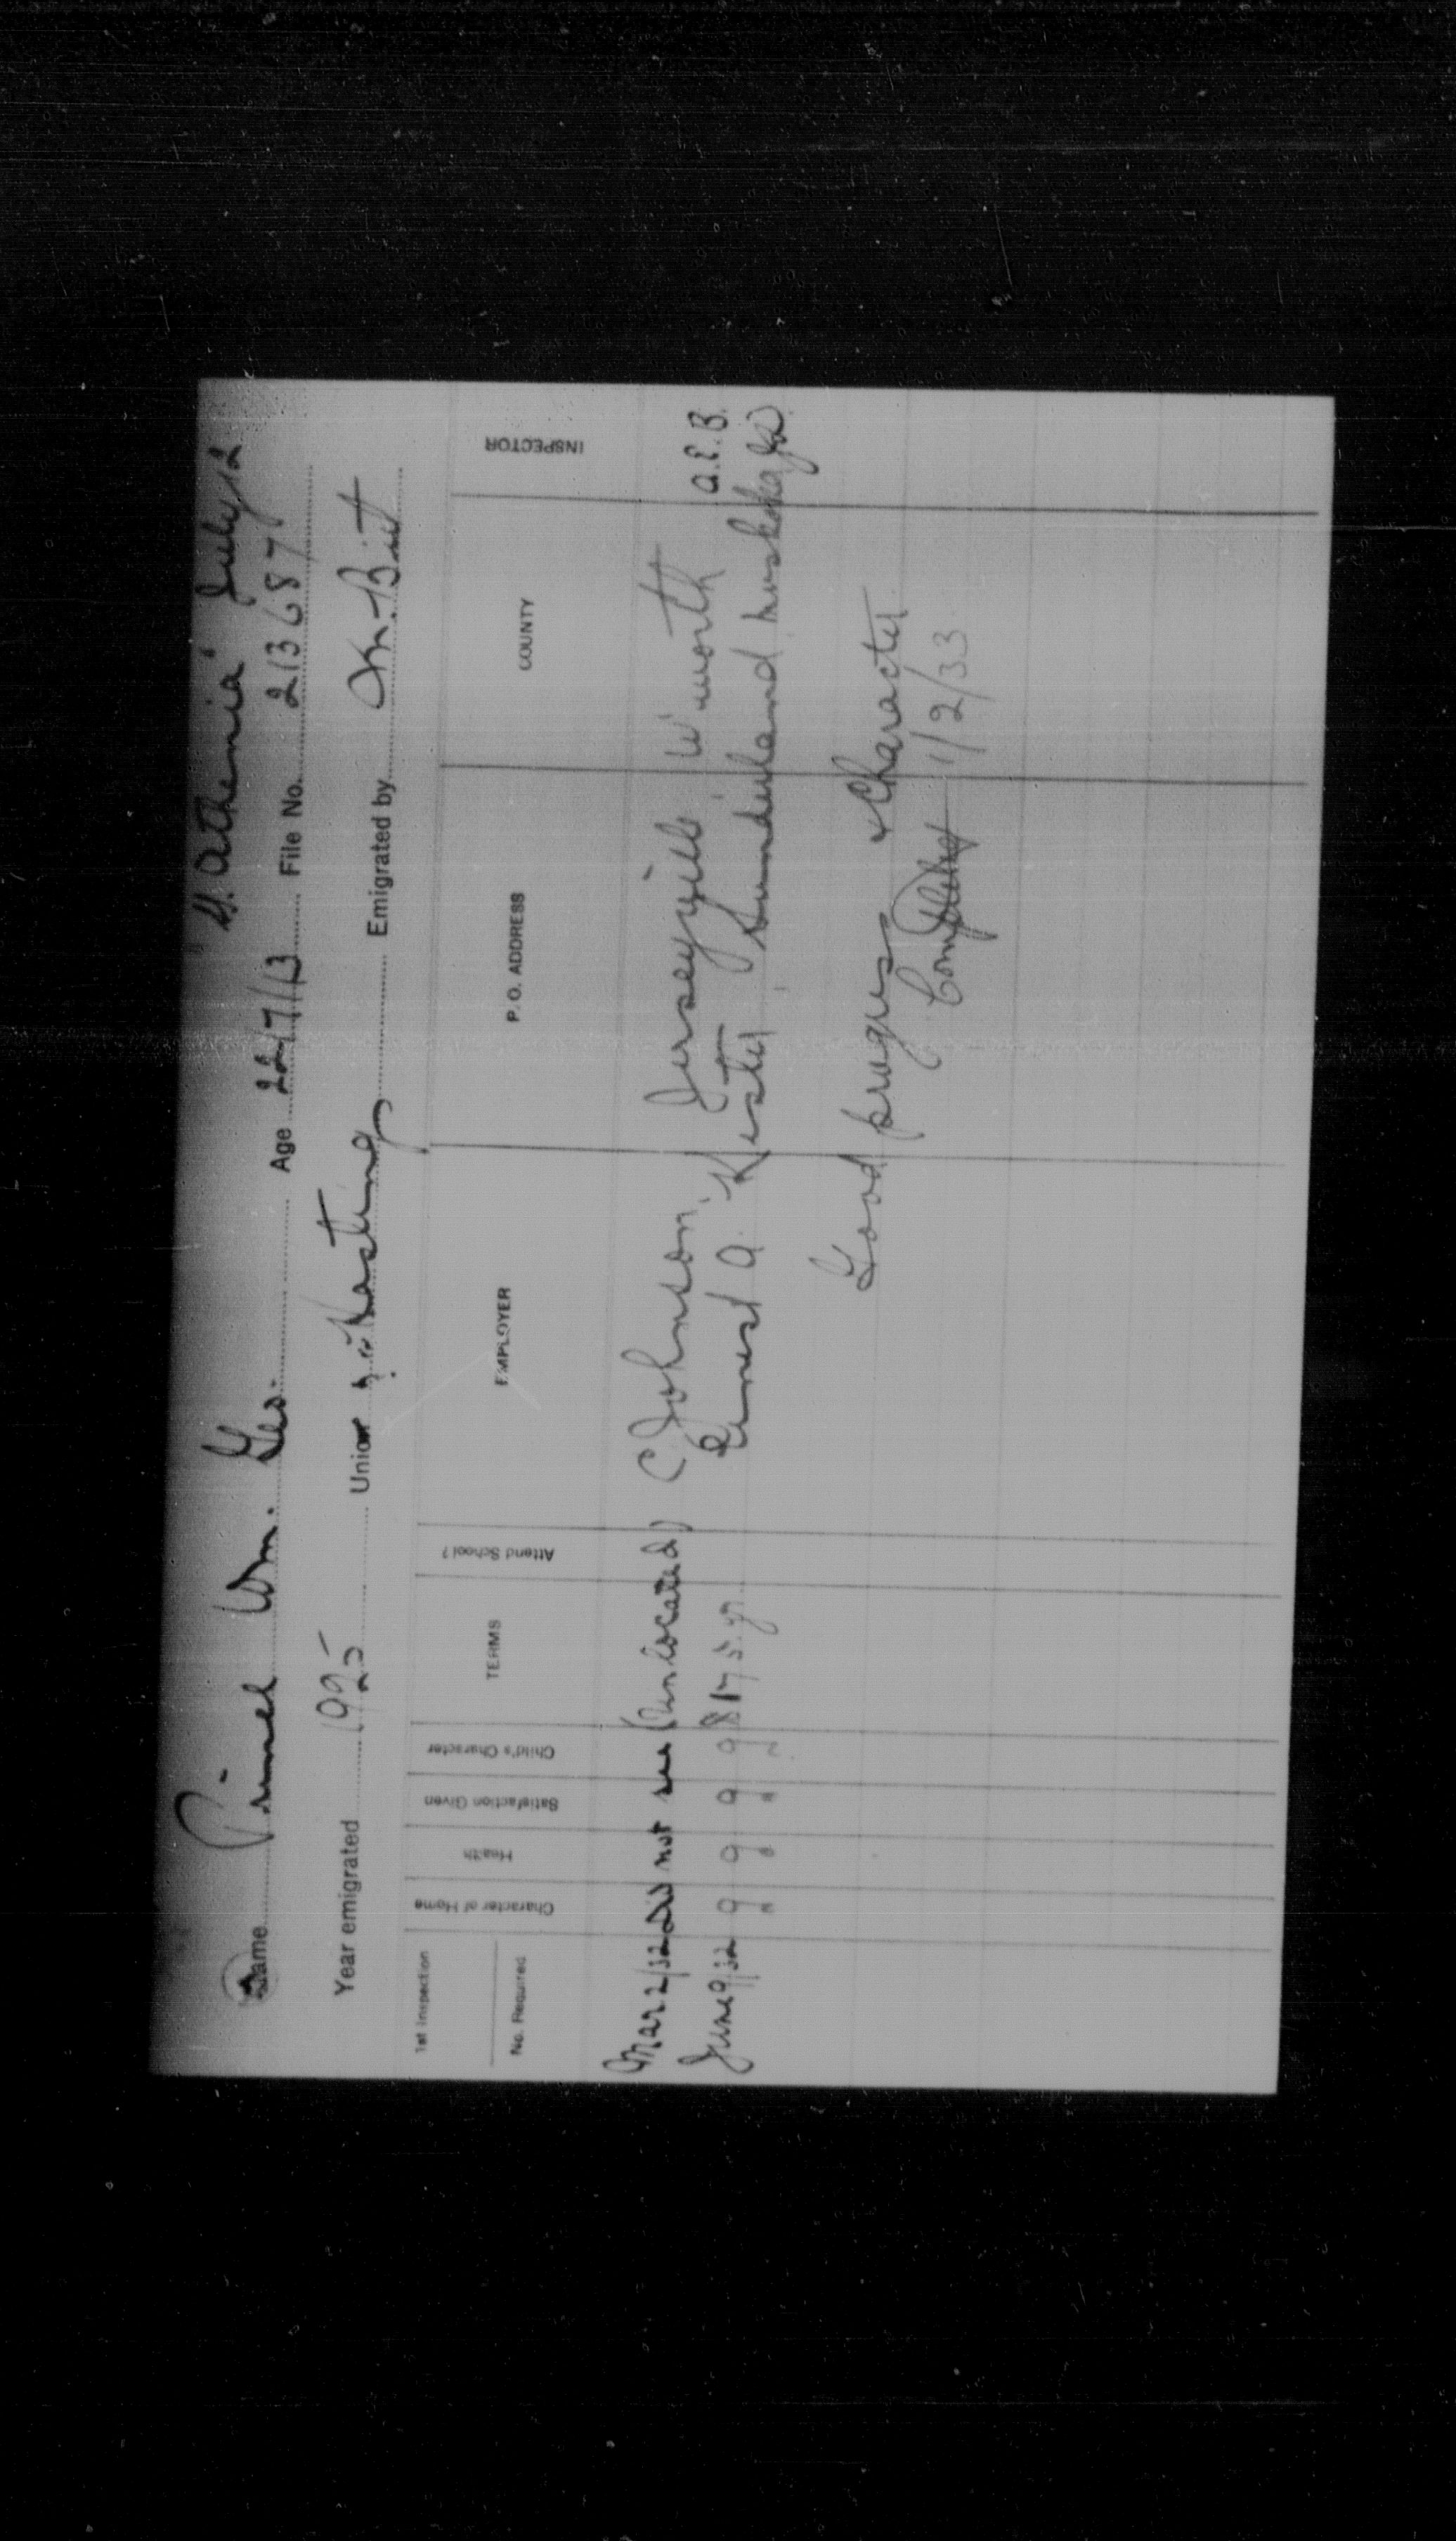 "S. Athenia" July 12
Name Primel Wm. Geo. Age 22/7/13 File No. 213687
Year emigrated 1925 Union Hastings Emigrated by Dr. B.
1st Inspection
No. Required
Character of Home
Health
Satisfaction Given
Child's Character
TERMS
Attend School?
EMPLOYER
P. O. ADDRESS
COUNTY
INSPECTOR
Mar 2/32 Did not see (Unlocated) C Johnson, Jerseyville W'worth A.E.B.
June 9/32 g g g g $175. yr Ernest A. Kister, Sunderland Muskoka
Good progress & Character
Completed 1/2/33